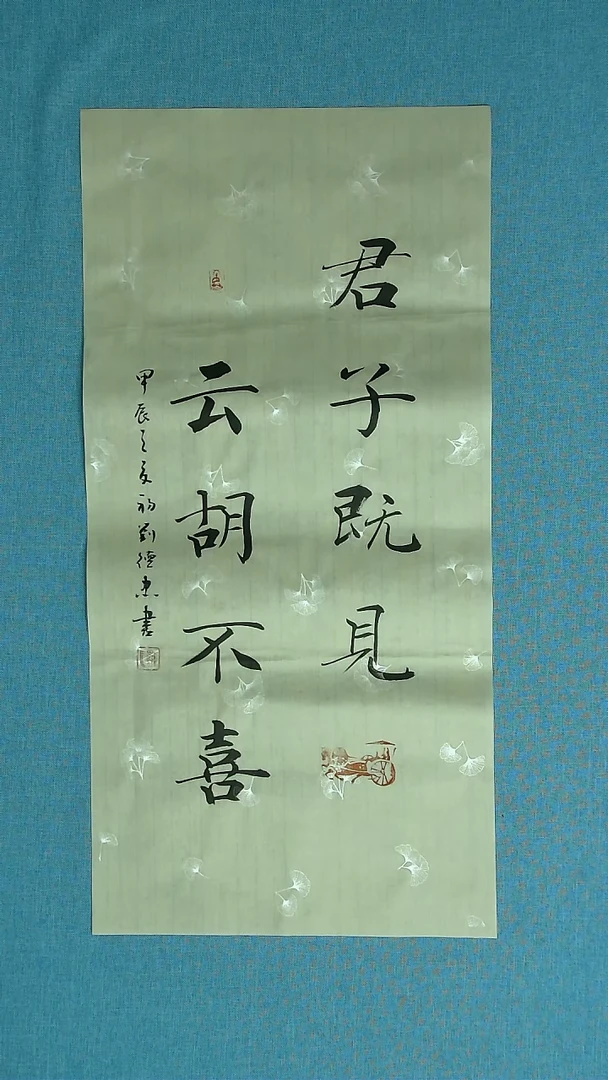 君子既見
云胡不喜
甲辰之夏初劉德忠書